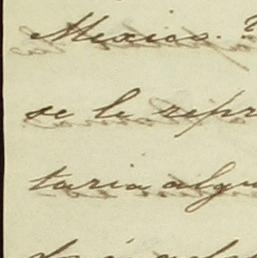 Mexico.
se le repr
taria algu